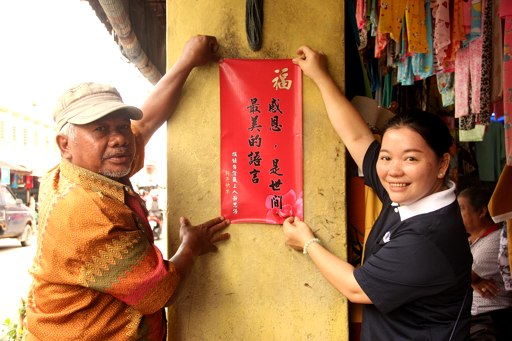 福
感恩，是世間
最美的語言